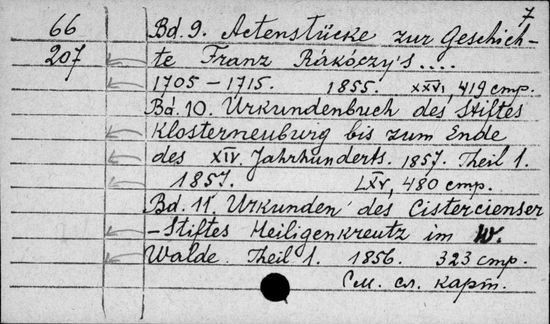 7
66 Bd. 9. Actenstücke zur Geschich-
207 te Franz Rákóczy's ....
1705 – 1715. 1855. XXVI, 419 стр.
Bd. 10. Urkundenbuch des Stiftes
Klosterneuburg bis zum Ende
des XIV. Jahrhunderts. 1857. Theil 1.
1857. LXV, 480 стр.
Bd. 11. Urkunden des Cistercienser
-Stiftes Heiligenkreutz im W.
Walde. Theil 1. 1856. 323 стр.
См. сл. карт.